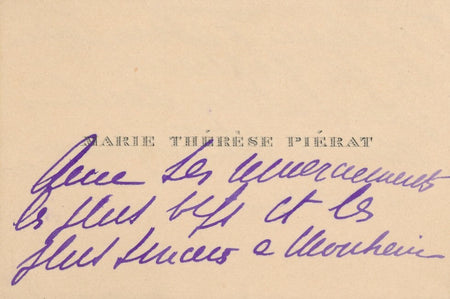 MARIE THÉRÈSE PIÉRAT
Avec ses remerciements
les plus vifs et les
plus sincères a Monsieur